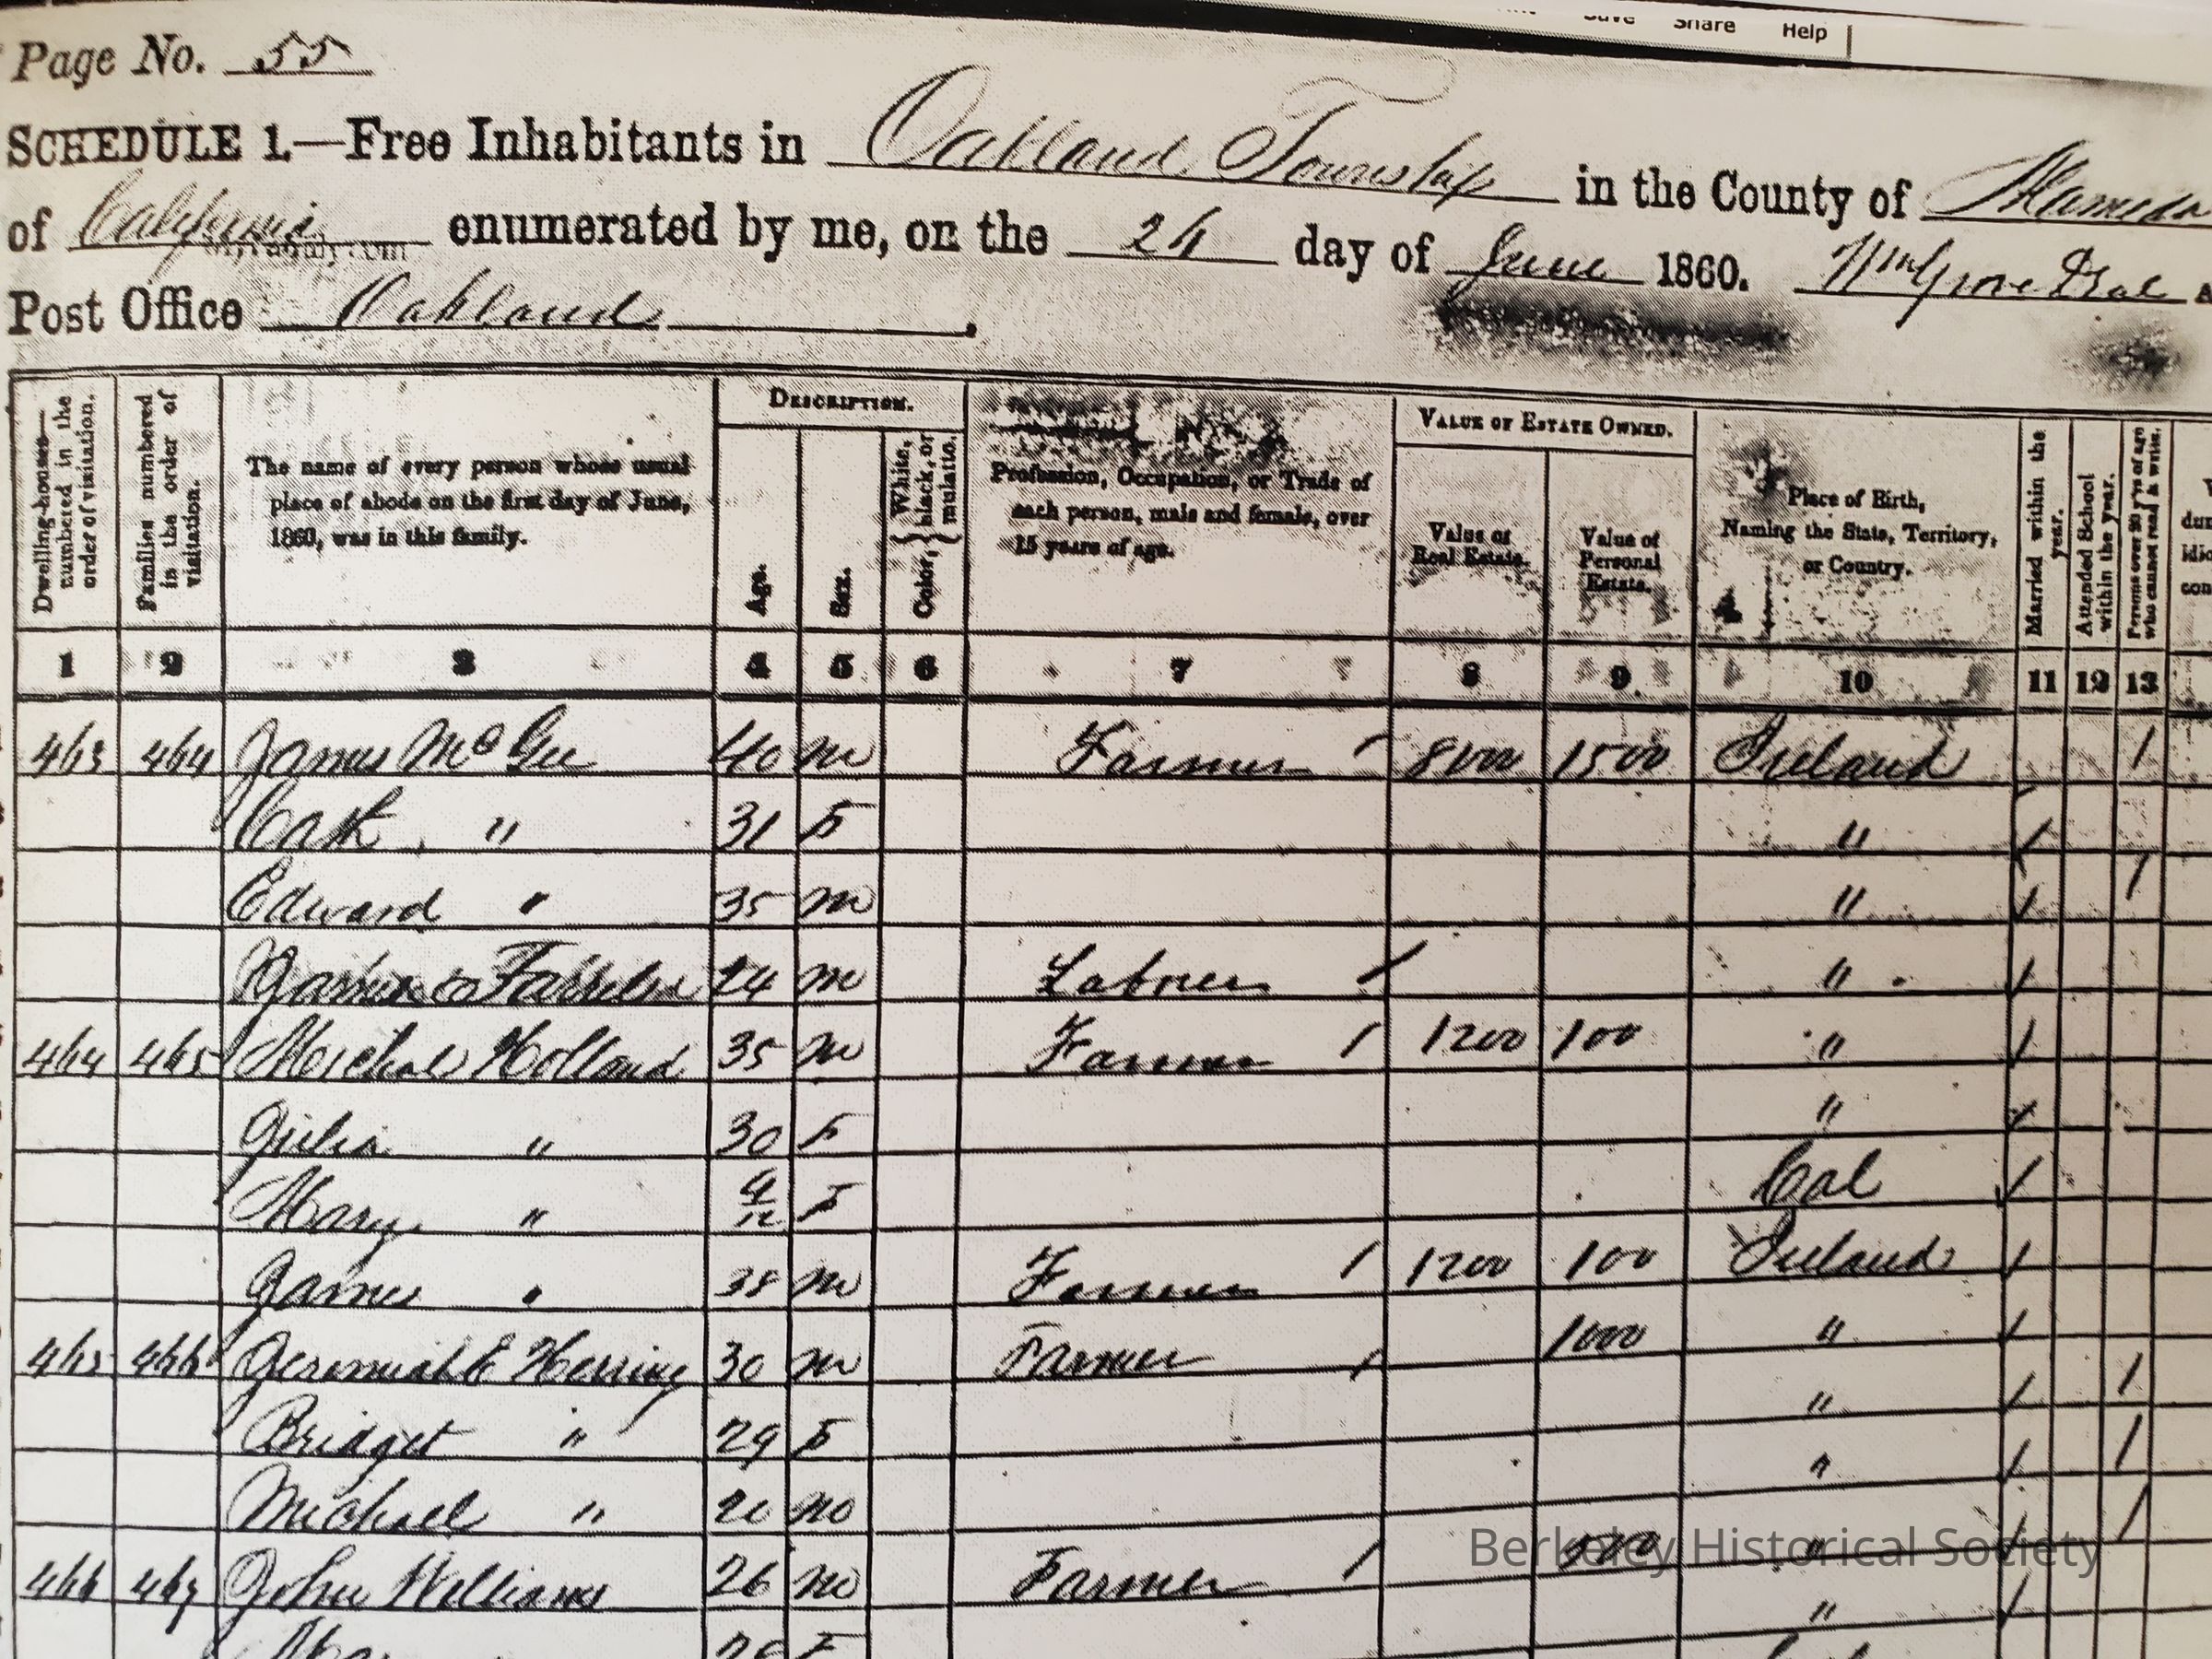 Save Share Help
Page No. 55
SCHEDULE 1.—Free Inhabitants in Oakland Township in the County of Alameda
of California enumerated by me, on the 24 day of June 1860.
Post Office Oakland
Dwelling-houses—numbered in the order of visitation.
Families numbered in the order of visitation.
The name of every person whose usual place of abode on the first day of June, 1860, was in this family.
DESCRIPTION.
Age.
Sex.
Color, { White, black, or mulatto.
Profession, Occupation, or Trade of each person, male and female, over 15 years of age.
VALUE OF ESTATE OWNED.
Value of Real Estate.
Value of Personal Estate.
Place of Birth, Naming the State, Territory, or Country.
Married within the year.
Attended School within the year.
Persons over 20 y'rs of age who cannot read & write.
1 2 3 4 5 6 7 8 9 10 11 12 13
463 464 James McGee 40 m Farmer / 8000 1500 Ireland /
Cath " 31 f "
Edward " 35 m " /
24 m Laborer / "
464 465 Michael Holland 35 m Farmer / 1200 100 "
Julia " 30 f "
Mary " 4/12 f Cal
James " 38 m Farmer / 1200 100 Ireland
465 466 Jeremiah E Herring 30 m Farmer / 1000 "
Bridget " 29 f " /
Michael " m " /
466 467 John Williams 26 m Farmer / " /
f "
Berkeley Historical Society